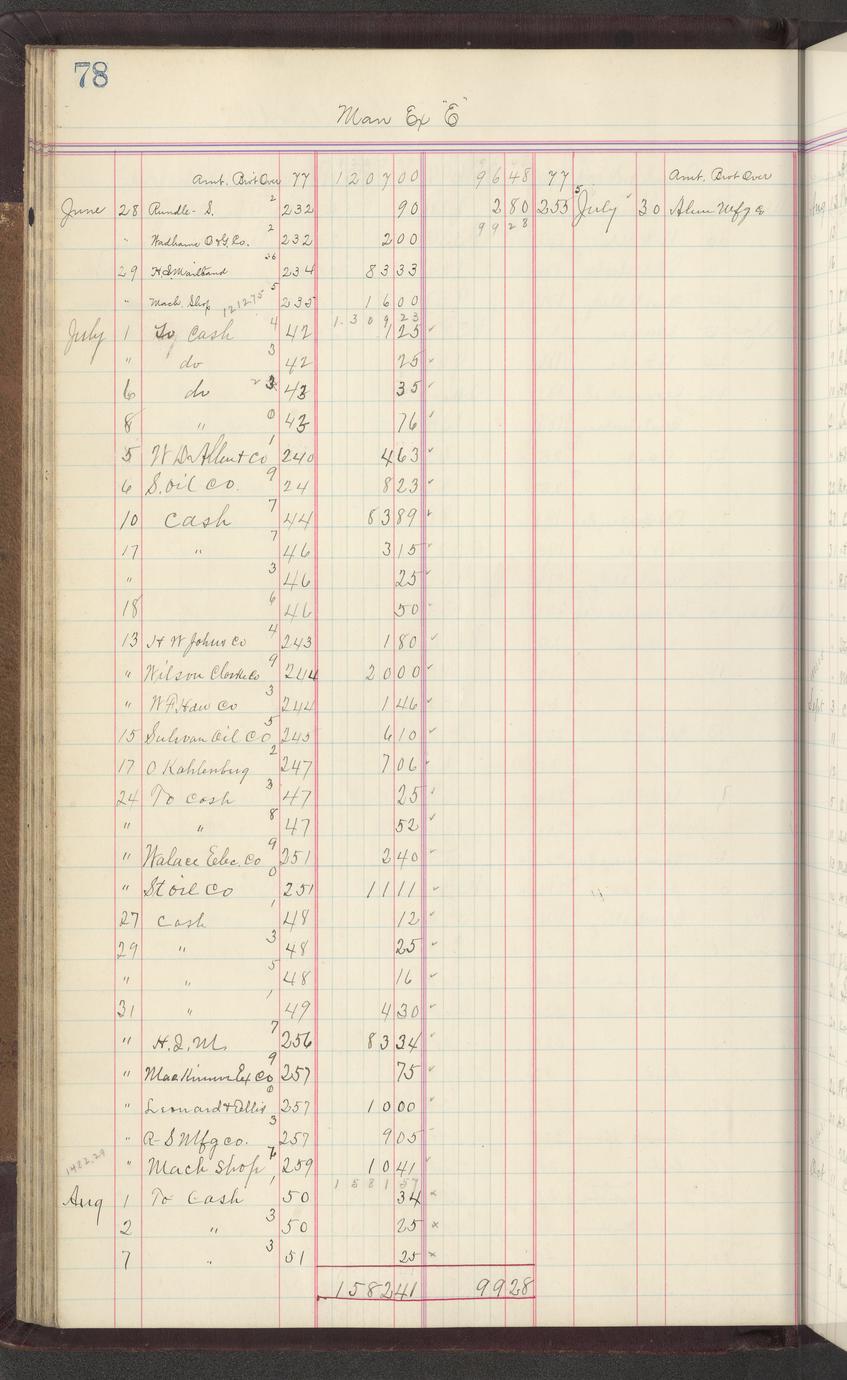 78
Man Ex "E"
Amt. Brot Over 77 1207 00 96 48 77 Amt. Brot Over
June 28 Rundle - S. 2 232 90 2 80 255 5 July 30 Alum Mfg
" Wadhams O & G. Co. 2 232 2 00 99 28
29 36 234 83 33
" Mach. Shop 1212 75 5 235 16 00
1309 23
July 1 To Cash 4 42 1 25
" do 3 42 25
6 do 3 43 35
8 " 0 43 76
5 1 240 4 63
6 S. Oil Co. 9 24 8 23
10 Cash 7 44 83 89
17 " 7 46 3 15
" 3 46 25
18 6 46 50
13 H W Johns Co 4 243 1 80
" Wilson Co 9 244 20 00
" W F Co 3 244 1 46
15 Sulivan Oil Co 5 245 6 10
17 O Kahlenburg 2 247 7 06
24 To Cash 3 47 25
" " 8 47 52
" Walace Elec. Co 9 251 2 40
" St Oil Co 0 251 11 11
27 Cash 1 48 12
29 " 3 48 25
" " 5 48 16
31 " 1 49 4 30
" H. D. M. 7 256 83 34
" Ex Co 9 257 75
" Leonard & Ellis 0 257 10 00
" R-S Mfg Co. 3 257 9 05
1482.29 " Mach Shop 7 259 10 41
1581 57
Aug 1 To Cash 1 50 34
2 " 3 50 25
7 " 3 51 25
1582 41 99 28